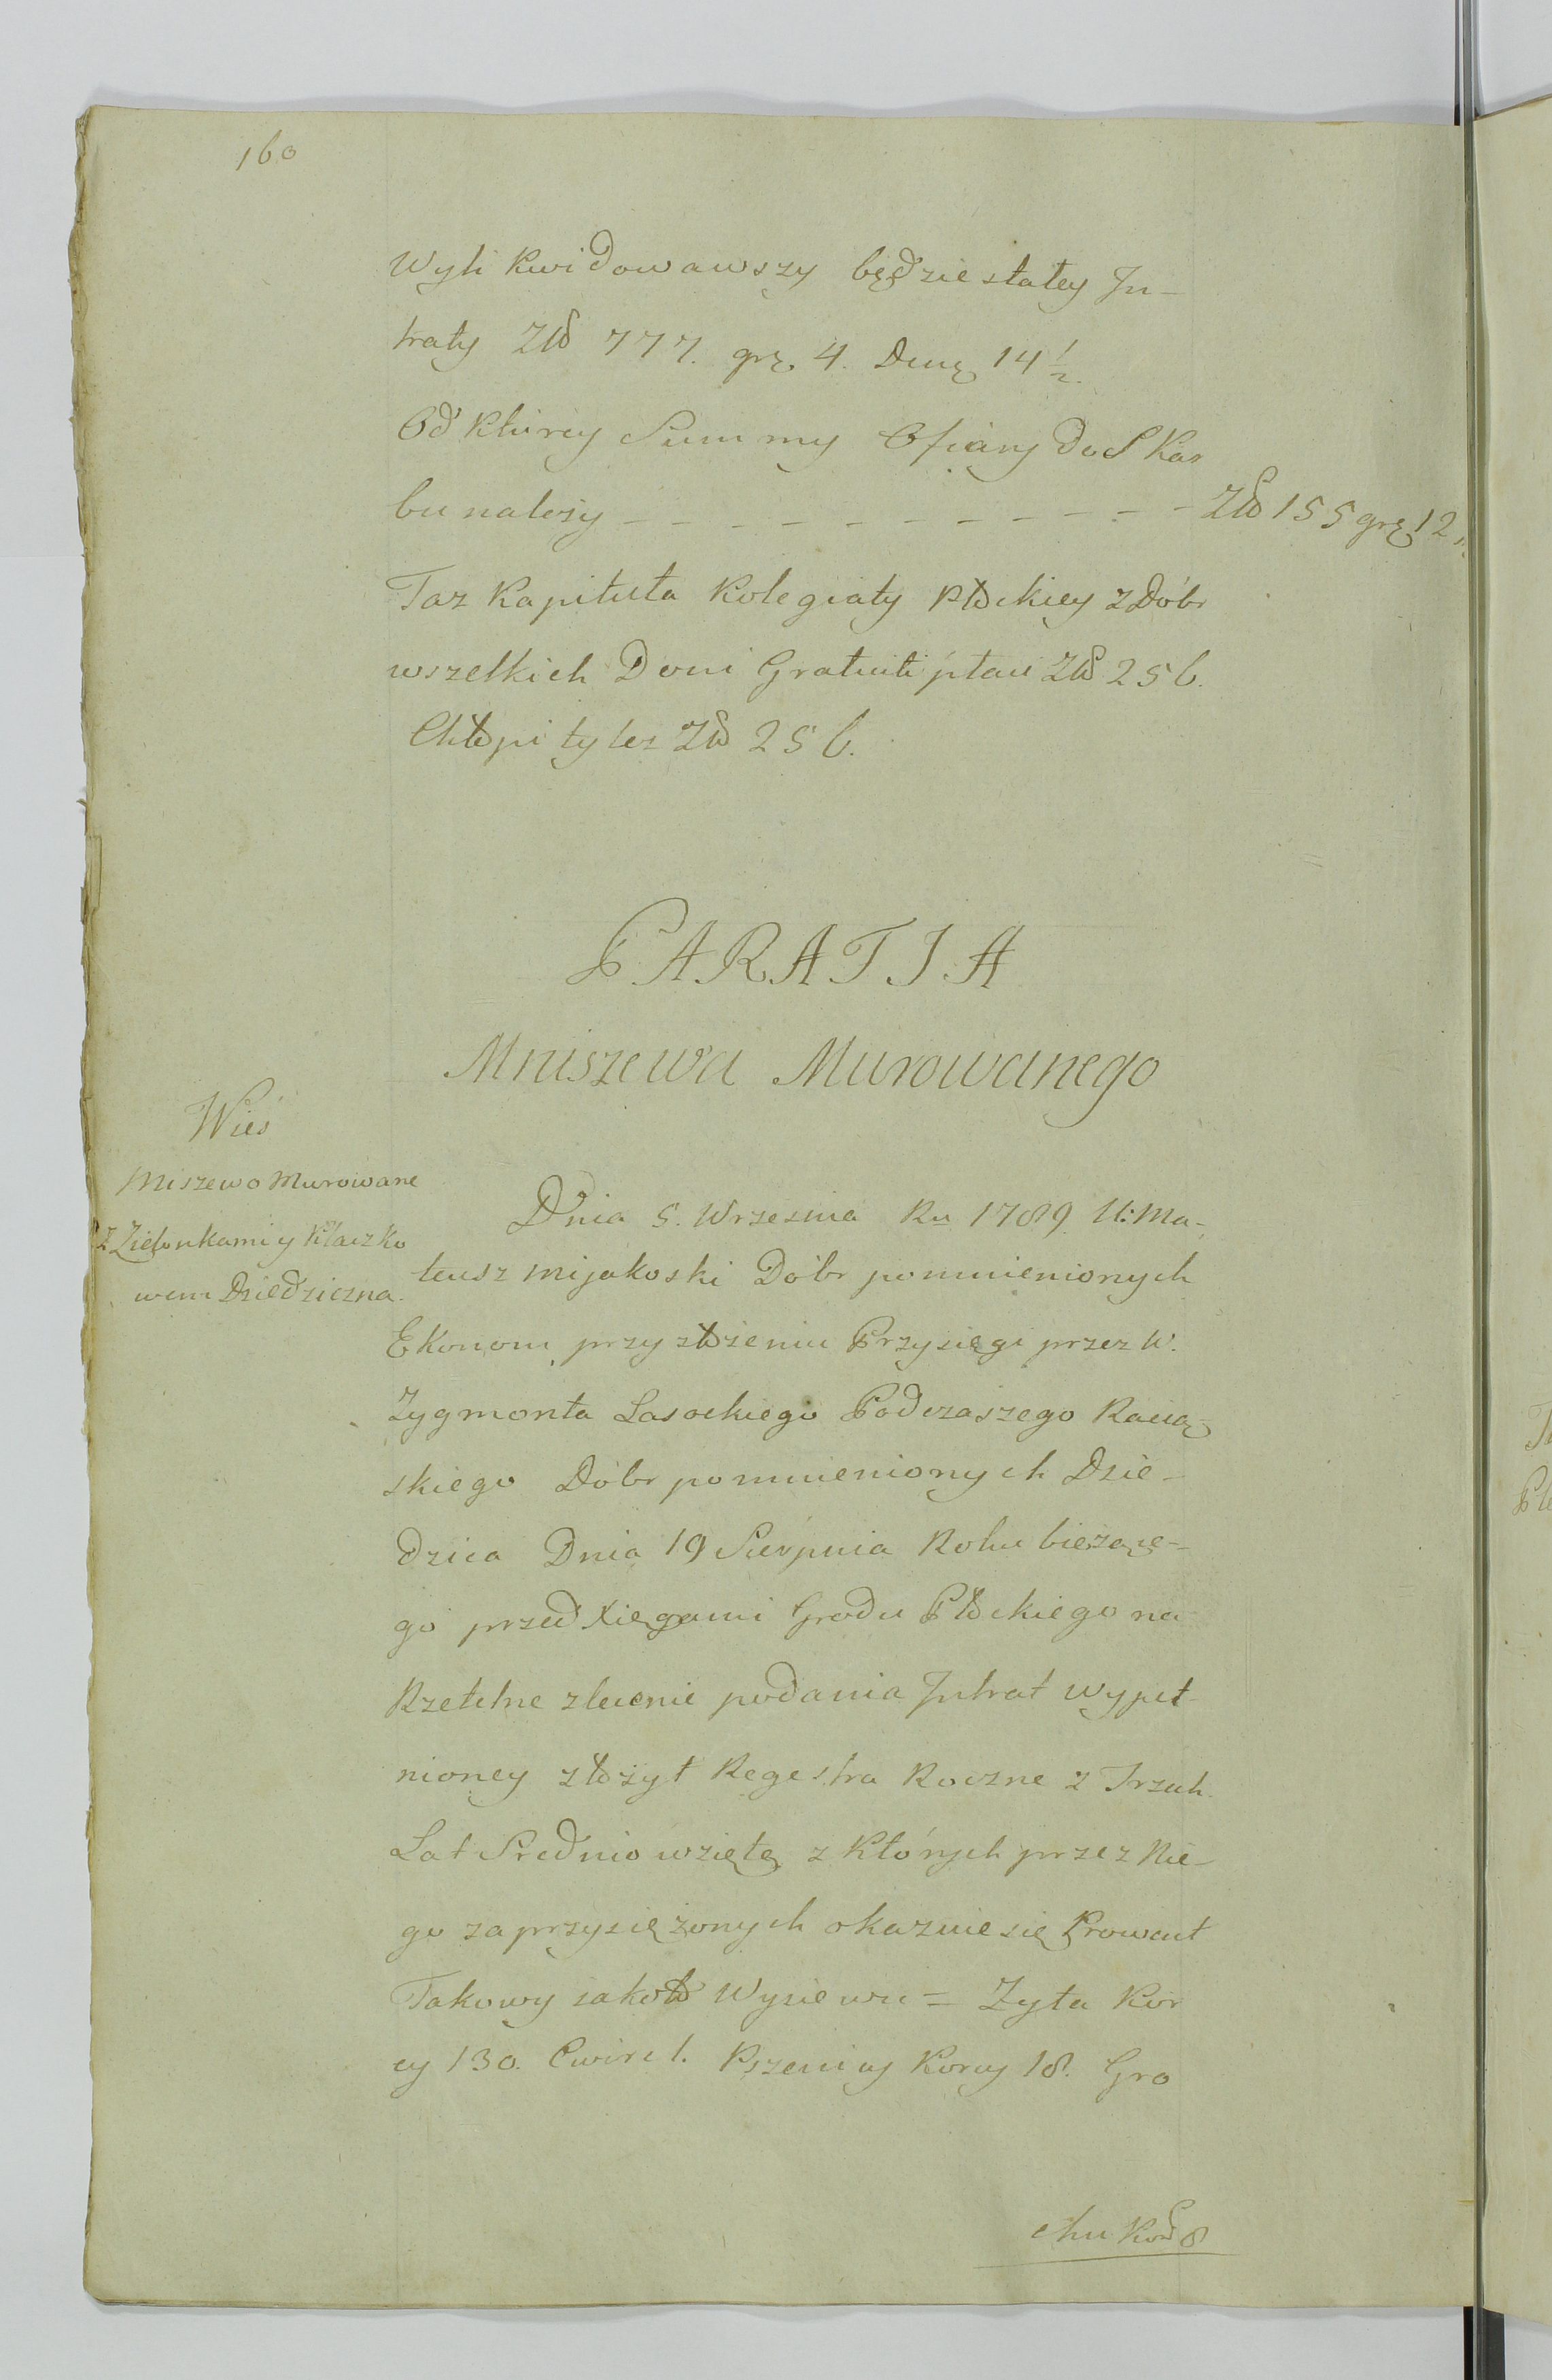 160
Wylikwidowawszy będzie stałey In-
traty Zło 777. grz. 4. Denę 14 1/2.
Od którey Summy Ofiary do Skar
bu należy - - - - - - - - - - - Zło 155 grę 12
Taz Kapituła Kolegiaty Płockiey z Dóbr
wszelkich Doni Gratuiti płaci Zło 256.
Chłopi tylez Zło 256.
PARAFIA
Mniszewa Murowanego
Wieś
Miszewo Murowane
z Zielonkami y Kłaczko
wem Dziedziczna.
Dnia 5. Wrzesnia Ru 1789. U: Ma-
teusz Mijakoski Dóbr pomnienionych
Ekonom przy złożeniu Przysięgi przez W.
Zygmonta Lasockiego Podczaszego Raciąż
skiego Dóbr pomnienionych Dzie-
dzica Dnia 19 Sierpnia Roku bieżące-
go przed Xięgami Grodu Płockiego na
Rzetelne zlecenie podania Intrat wypeł-
nioney złożył Regestra Roczne z Trzech
Lat Srednio wziętę z których przez Nie-
go zaprzysiężonych okazuie się Prowent
Takowy iako to Wysiewu = Zyta Kor
cy 130. Cwierć 1. Pszenicy Korcy 18. Gro
chu Kor 8